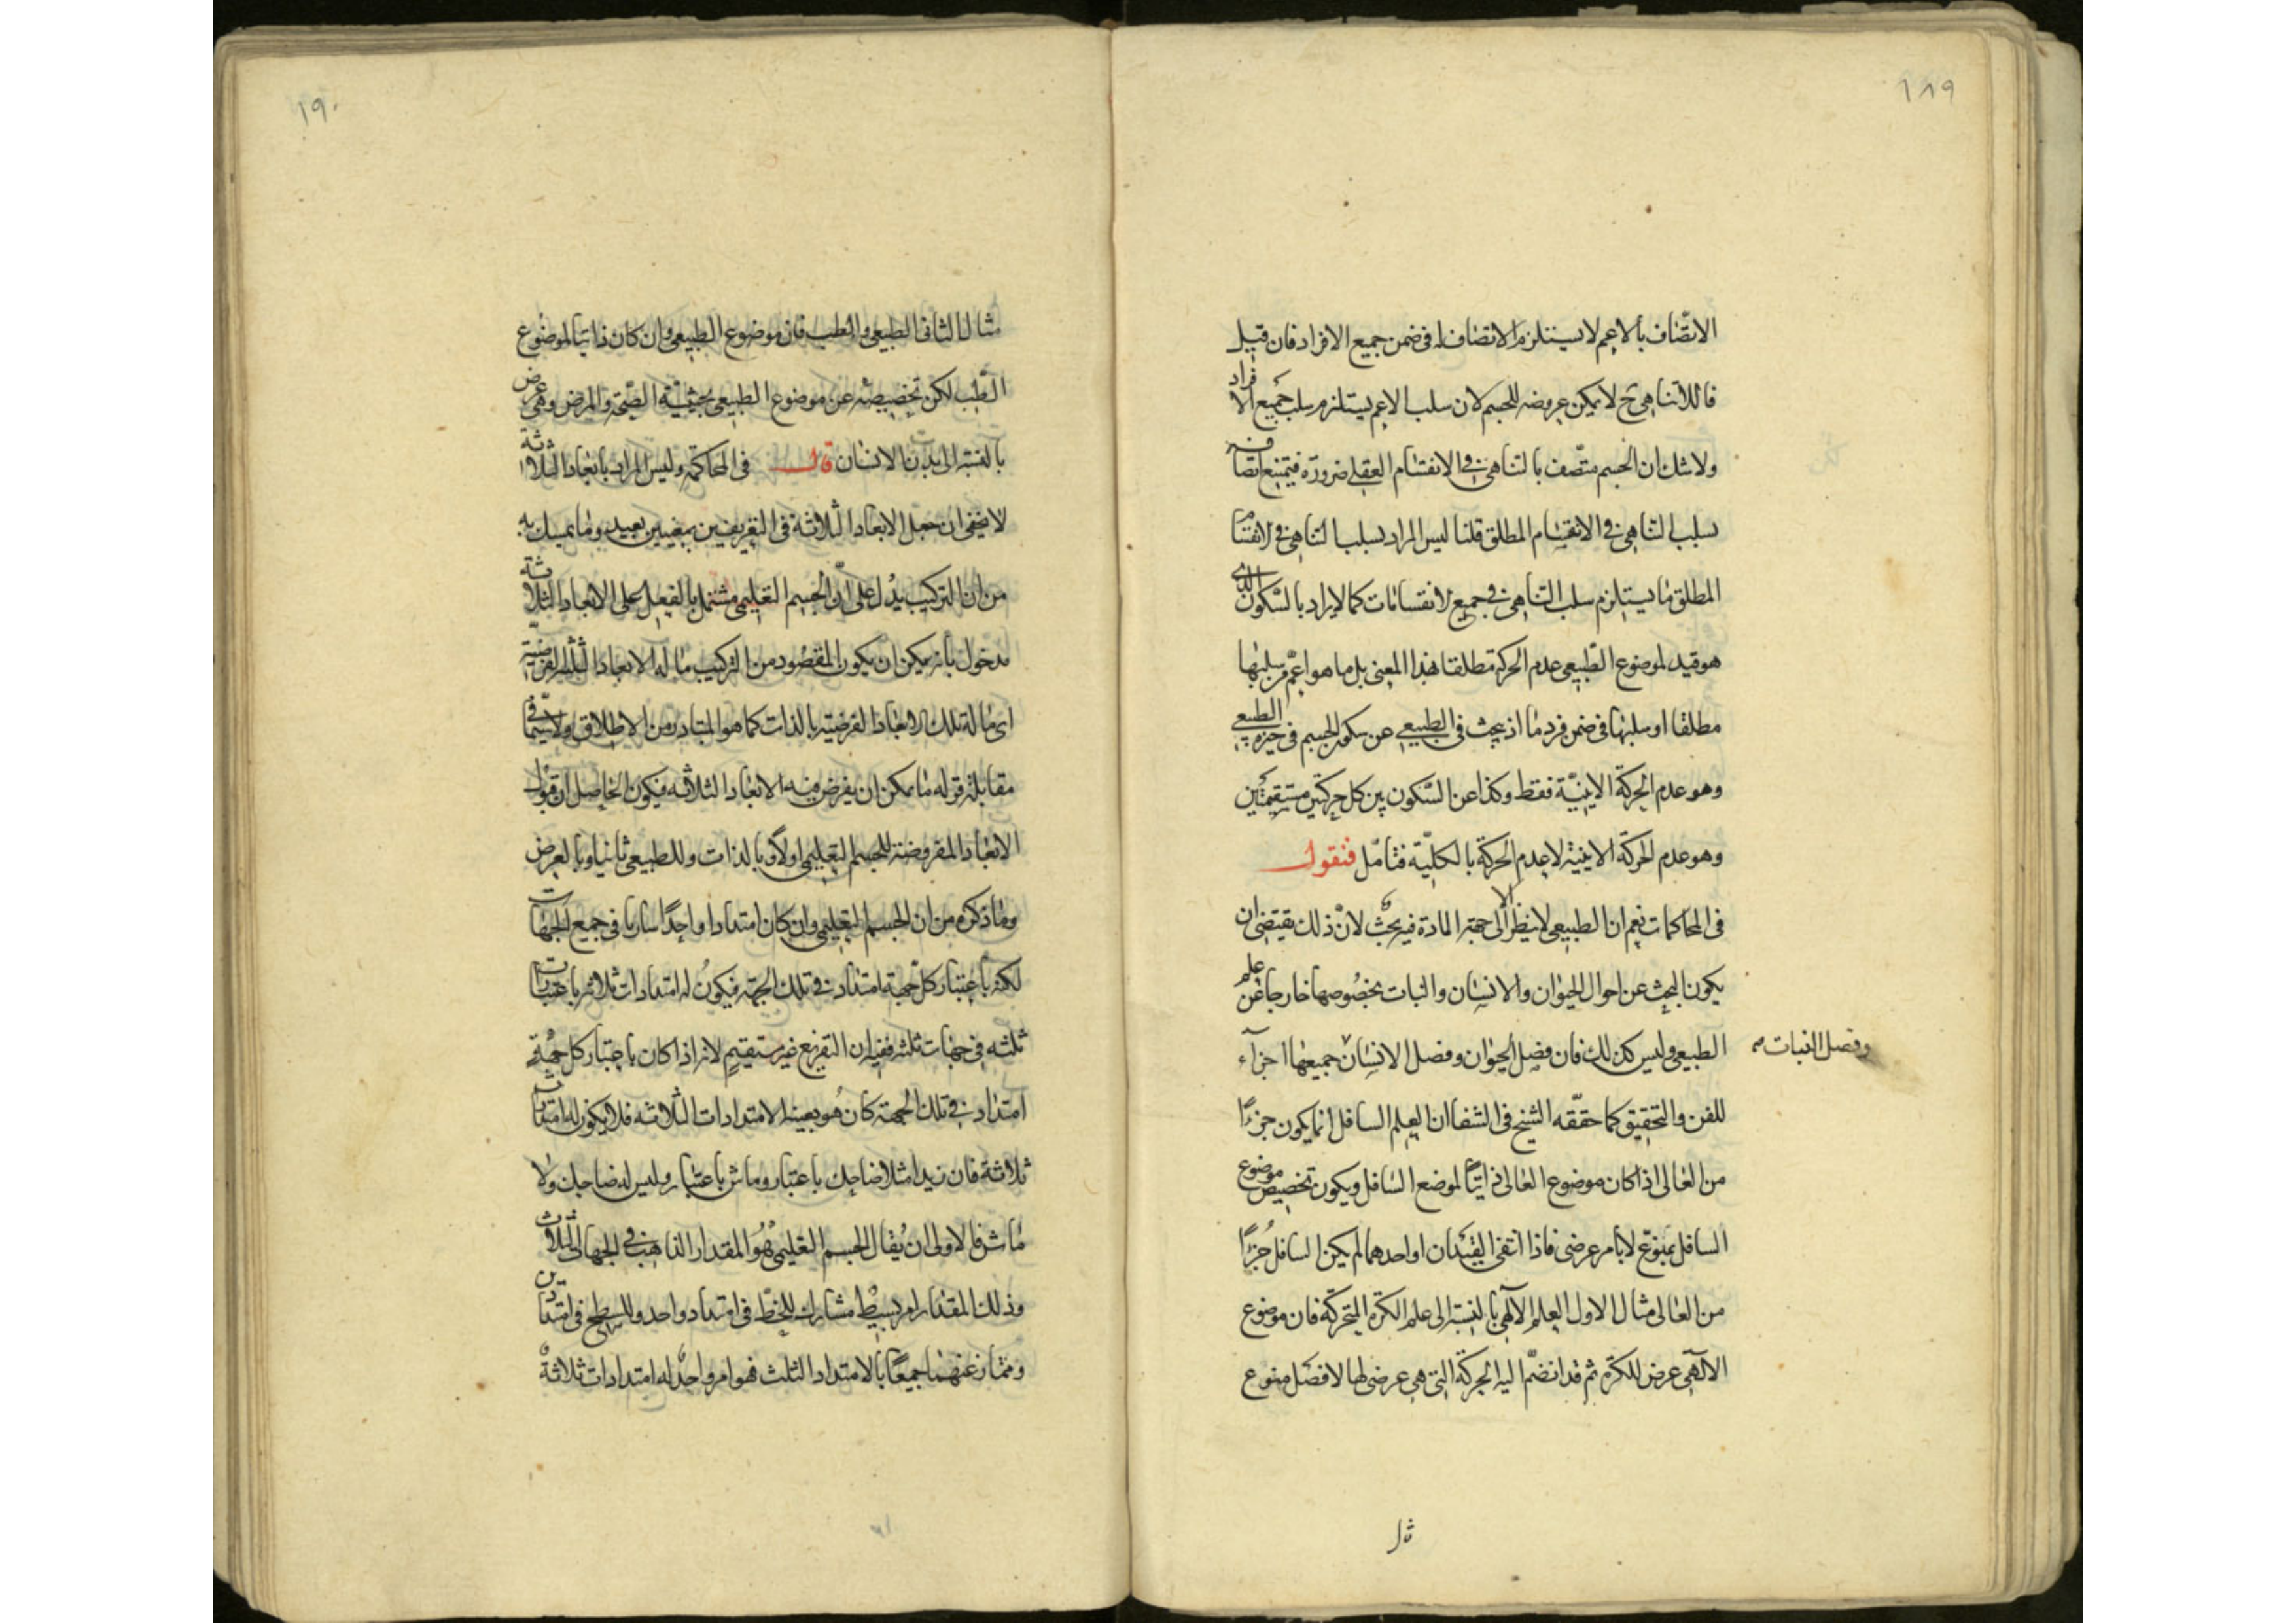 ١٨٩
الاتّصاف بالاعم لا يستلزم الاتصاف له فى ضمن جميع الافراد فان قيل
فاللاتناهى ح لا يمكن عروضه للجسم لان سلب الاعم يستلزم سلب جميع الافراد
ولا شك ان الجسم متّصف بالتناهى فى الانقسام العقلى ضرورة فيمتنع اتصافه
بسلب التناهى فى الانقسام المطلق قلنا ليس المراد بسلب التناهى فى الانقسام
المطلق ما يستلزم سلب التناهى فى جميع الانقسامات كما لا يراد بالسّكون الذى
هو قيد لموضوع الطّبيعى عدم الحركة مطلقا هذا المعنى بل ما هو اعمّ من سلبها
مطلقا او سلبها فى ضمن فرد ما اذ يبحث فى الطبيعى عن سكون الجسم فى حيزه الطبيعى
وهو عدم الحركة الاينيّة فقط وكذا عن السّكون بين كل حركتين مستقيمتين
وهو عدم الحركة الاينية لا عدم الحركة بالكليّة فتامّل فنقول
فى المحاكمات نعم ان الطبيعى لا ينظر الا الى جهة المادة فيه بحث لانّ ذلك يقتضى ان
يكون البحث عن احوال الحيوان والانسان والنبات بخصوصها خارجا عن علم
الطبيعى وليس كذلك فان فصل الحيوان وفصل الانسان جميعها اجزآء
وفصل النبات صح
للفن والتحقيق كما حقّقه الشيخ فى الشفا ان العلم السافل انما يكون جزءًا
من العالى اذا كان موضوع العالى ذاتيّا لموضع السافل ويكون تخصيص موضوع
السافل بمنوّع لا بامر عرضى فاذا انتفى القيدان او احدهما لم يكن السافل جزءًا
من العالى مثال الاول العلم الآلهى بالنسبة الى علم الكرة المتحركة فان موضوع
الآلهى عرض للكرة ثم قد انضمّ اليه الحركة التى هى عرضى لها لا فصل منوع
مثال
١٩٠
مثال الثانى الطبيعى والطب فان موضوع الطبيعى وان كان ذاتيا لموضوع
الطّب لكن تخصيصه عن موضوع الطبيعى بحيثيّة الصّحة والمرض وهى عرض
بالنسبة الى بدن الانسان قال فى المحاكمة وليس المراد بابعاد الثلاثة
لا يخفى ان جعل الابعاد الثلاثة فى التعريفين بمعنيين بعيد وما تمسك به
من ان التركيب يدل على انّ الجسم التعليمى مشتمل بالفعل على الابعاد الثلاثة
مدخول بانه يمكن ان يكون المقصود من التركيب ما له الابعاد الثلثة الفرضيّة
اى ما له تلك الابعاد الفرضية بالذات كما هو المتبادر من الاطلاق ولا سيّما فى
مقابلة قوله ما يمكن ان يفرض فيه الابعاد الثلاثه فيكون الحاصل ان قبول
الابعاد المفروضة للجسم التعليمى اولاً وبالذات وللطبيعى ثانيا وبالعرض
وما ذكره من ان الجسم التعليمى وان كان امتدادا واحدًا ساريا فى جميع الجهات
لكنه باعتبار كل جهة امتداد فى تلك الجهة فيكون له امتدادات ثلاثة باعتبارات
ثلثه فى جهات ثلثه ففيه ان التفريع غير مستقيم لانه اذا كان باعتبار كل جهة
امتداد فى تلك الجهة كان هو بعينه الامتدادات الثلاثه فلا يكون له امتدادات
ثلاثة فان زيدا مثلا ضاحك باعتبار وماش باعتبار وليس له ضاحك ولا
ماش فالاولى ان يقال الجسم التعليمى هو المقدار الذاهب فى الجهات الثلاث
وذلك المقدار امر بسيط مشارك للخطّ فى امتداد واحد وللسطح فى امتدادين
وممتاز عنهما جميعًا بالامتداد الثالث فهو امر واحد له امتدادات ثلاثة